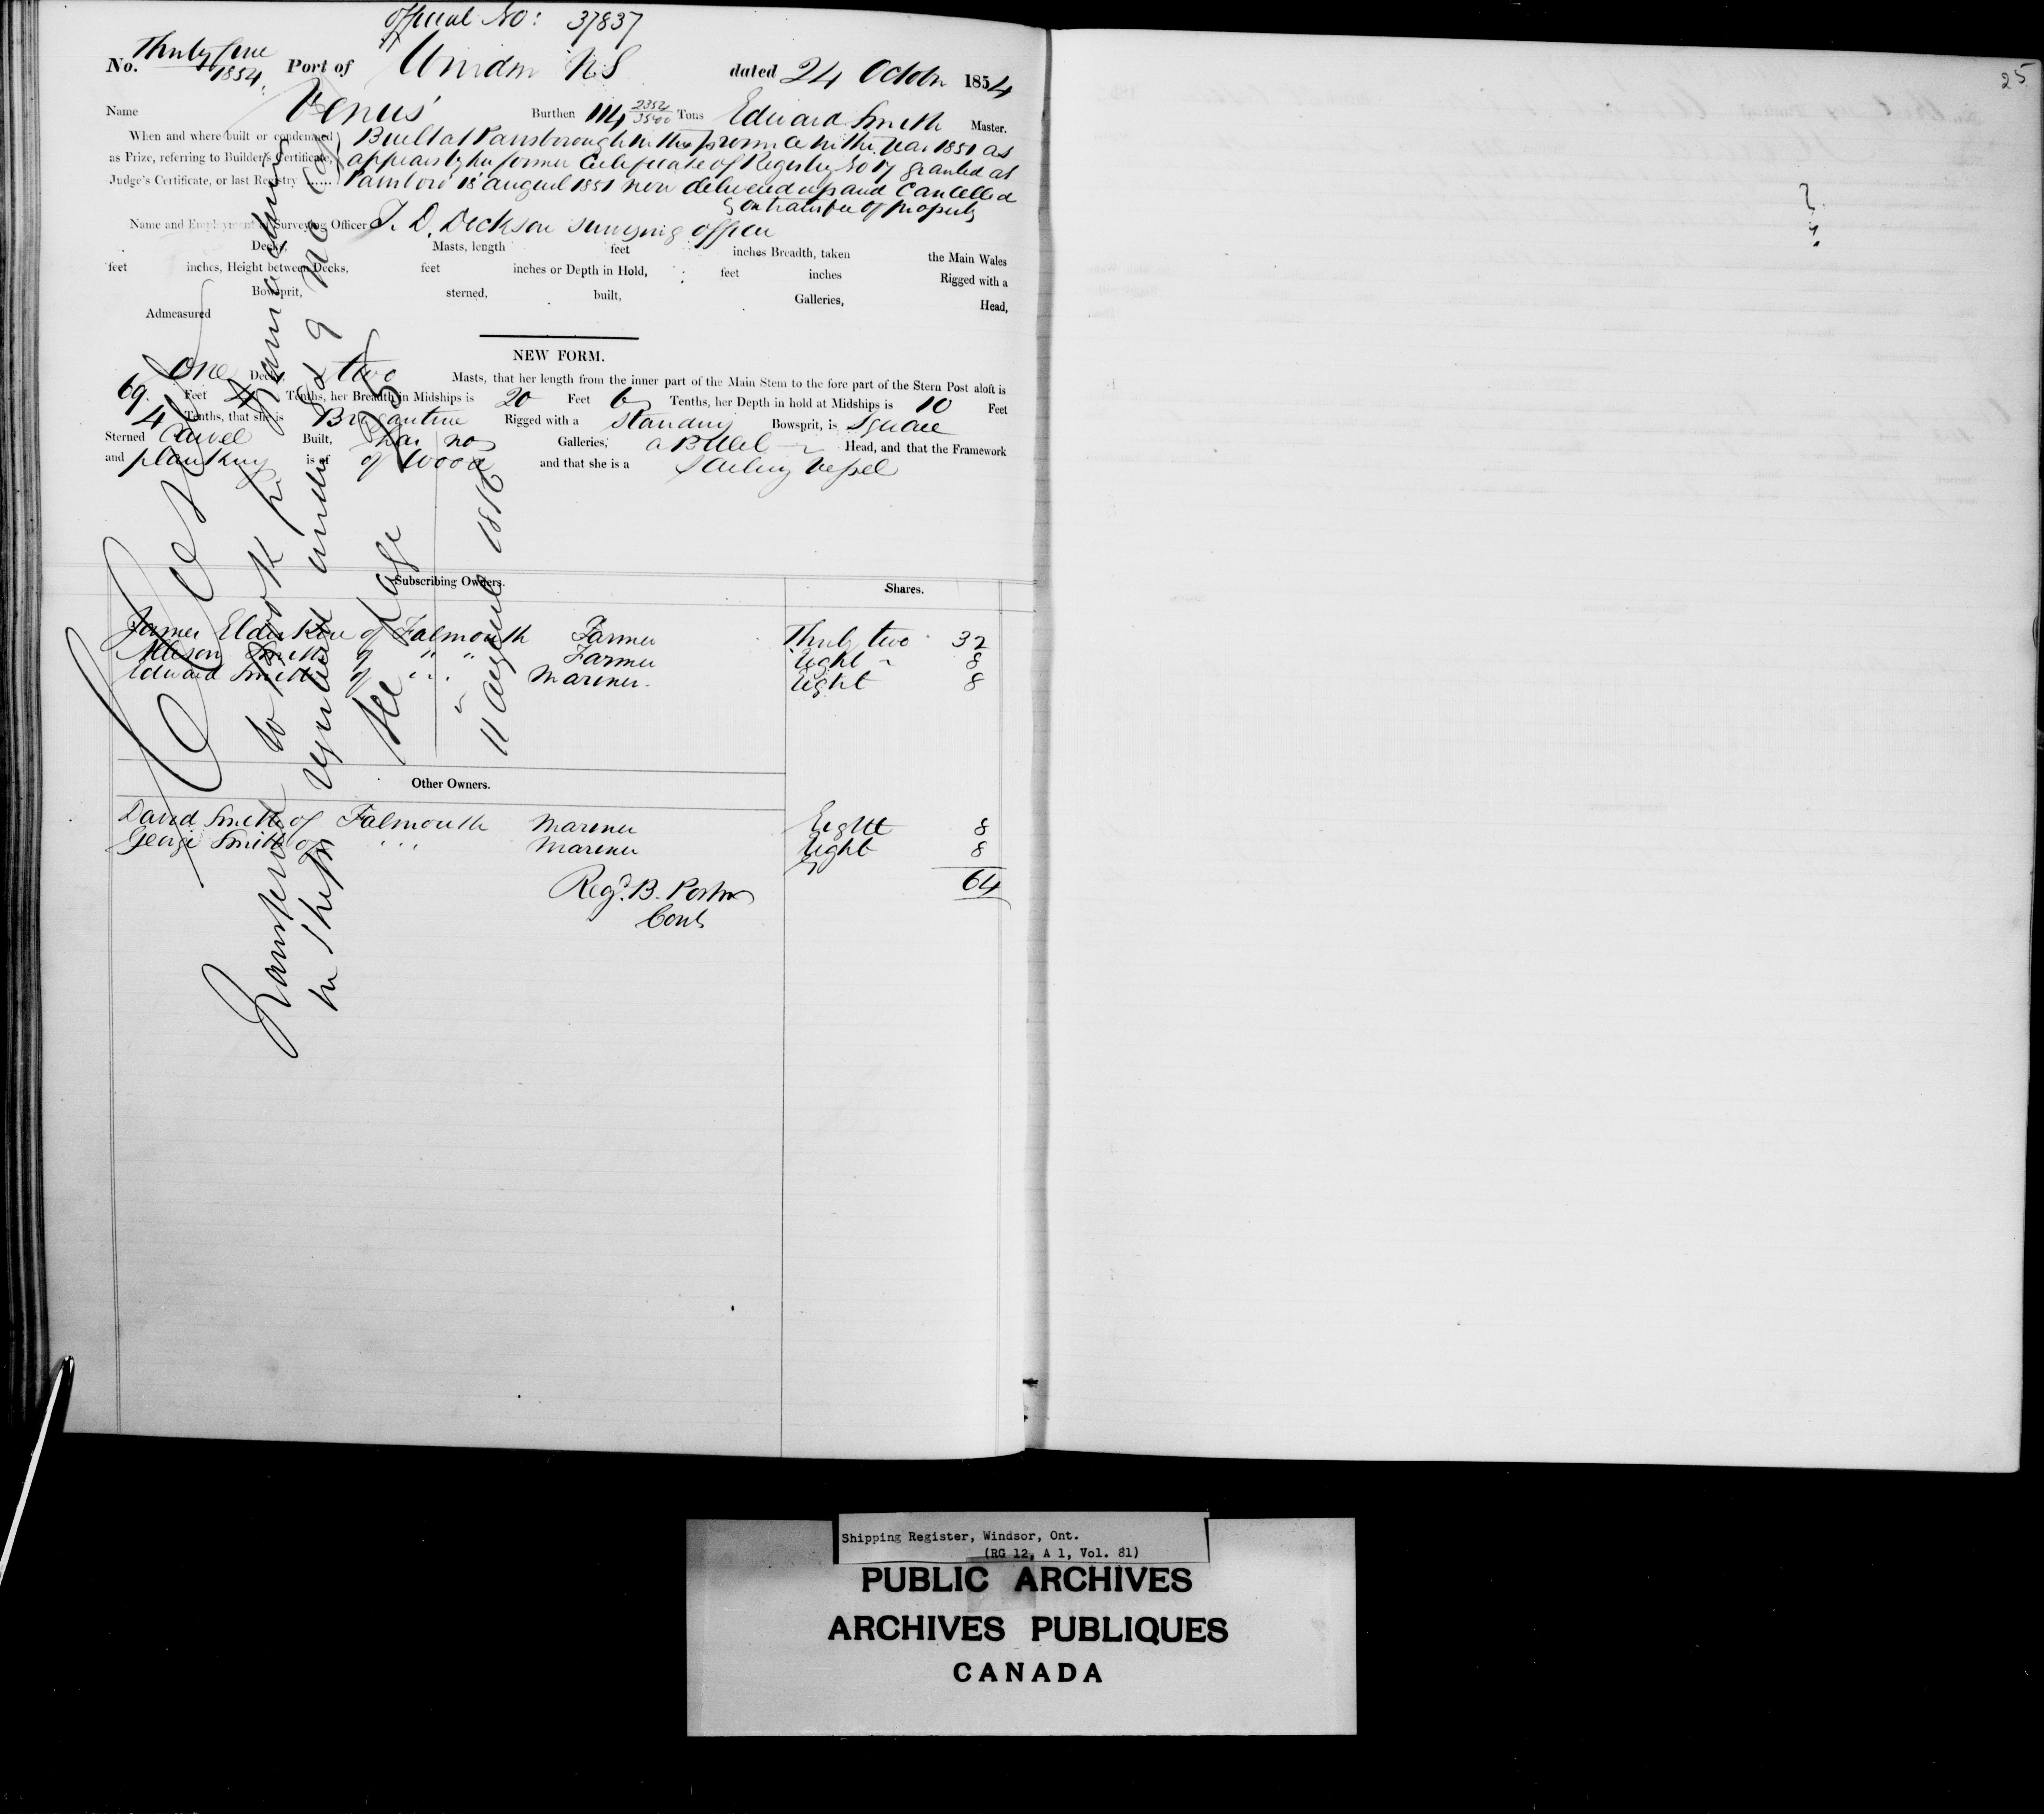 Official No: 37837
No. Thirty five 1854. Port of Windsor NS dated 24 October 1854
Name Venus Burthen 114 2352/3500 Tons Edward Smith Master.
When and where built or condemned Built at Parrsborough in this province in the year 1851 as
as Prize, referring to Builder's Certificate, appears by her former Certificate of Registry No 17 granted at
Judge's Certificate, or last Registry ...... Parrsboro 18 august 1851 now delivered up and Cancelled
on transfer of property
Name and Employment of Surveying Officer T. D. Dickson surveying officer
Decks, Masts, length feet inches Breadth, taken the Main Wales
feet inches, Height between Decks, feet inches or Depth in Hold, feet inches Rigged with a
Bowsprit, sterned, built, Galleries, Head,
Admeasured
NEW FORM.
one Decks, two Masts, that her length from the inner part of the Main Stem to the fore part of the Stern Post aloft is
69. Feet 4 Tenths, her Breadth in Midships is 20 Feet 6 Tenths, her Depth in hold at Midships is 10 Feet
4 Tenths, that she is Brigantine Rigged with a Standing Bowsprit, is Square
Sterned Carvel Built, has no Galleries, a Billet Head, and that the Framework
and planking is of of Wood and that she is a Sailing Vessel
Subscribing Owners. Shares.
James Elderkin of Falmouth Farmer Thirty two 32
Allison Smith of " " Farmer Eight 8
Edward Smith of " " Mariner. Eight 8
Other Owners.
David Smith of Falmouth Mariner Eight 8
George Smith of " " " Mariner Eight 8
64
Regd. B. Porter
Cont
Transferred to Book
in Ship registered under
See Page
11 August 18
25
Shipping Register, Windsor, Ont.
(RG 12, A 1, Vol. 81)
PUBLIC ARCHIVES
ARCHIVES PUBLIQUES
CANADA